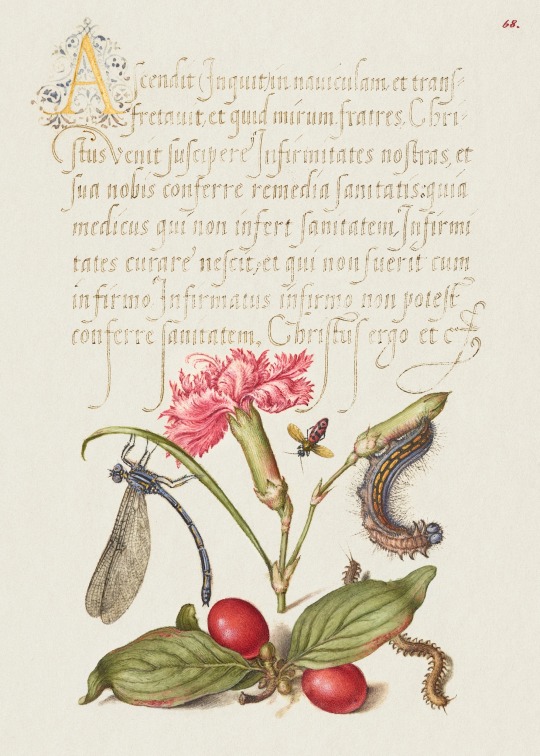 68.
Ascendit (Inquit) in nauiculam et trans-
fretauit, et quid mirum fratres, Chri-
stus venit suscipere Infirmitates nostras, et
sua nobis conferre remedia sanitatis: quia
medicus qui non infert sanitatem, Infirmi
tates curare nescit, et qui non fuerit cum
infirmo Infirmatus infirmo non potest
conferre sanitatem, Christus ergo et